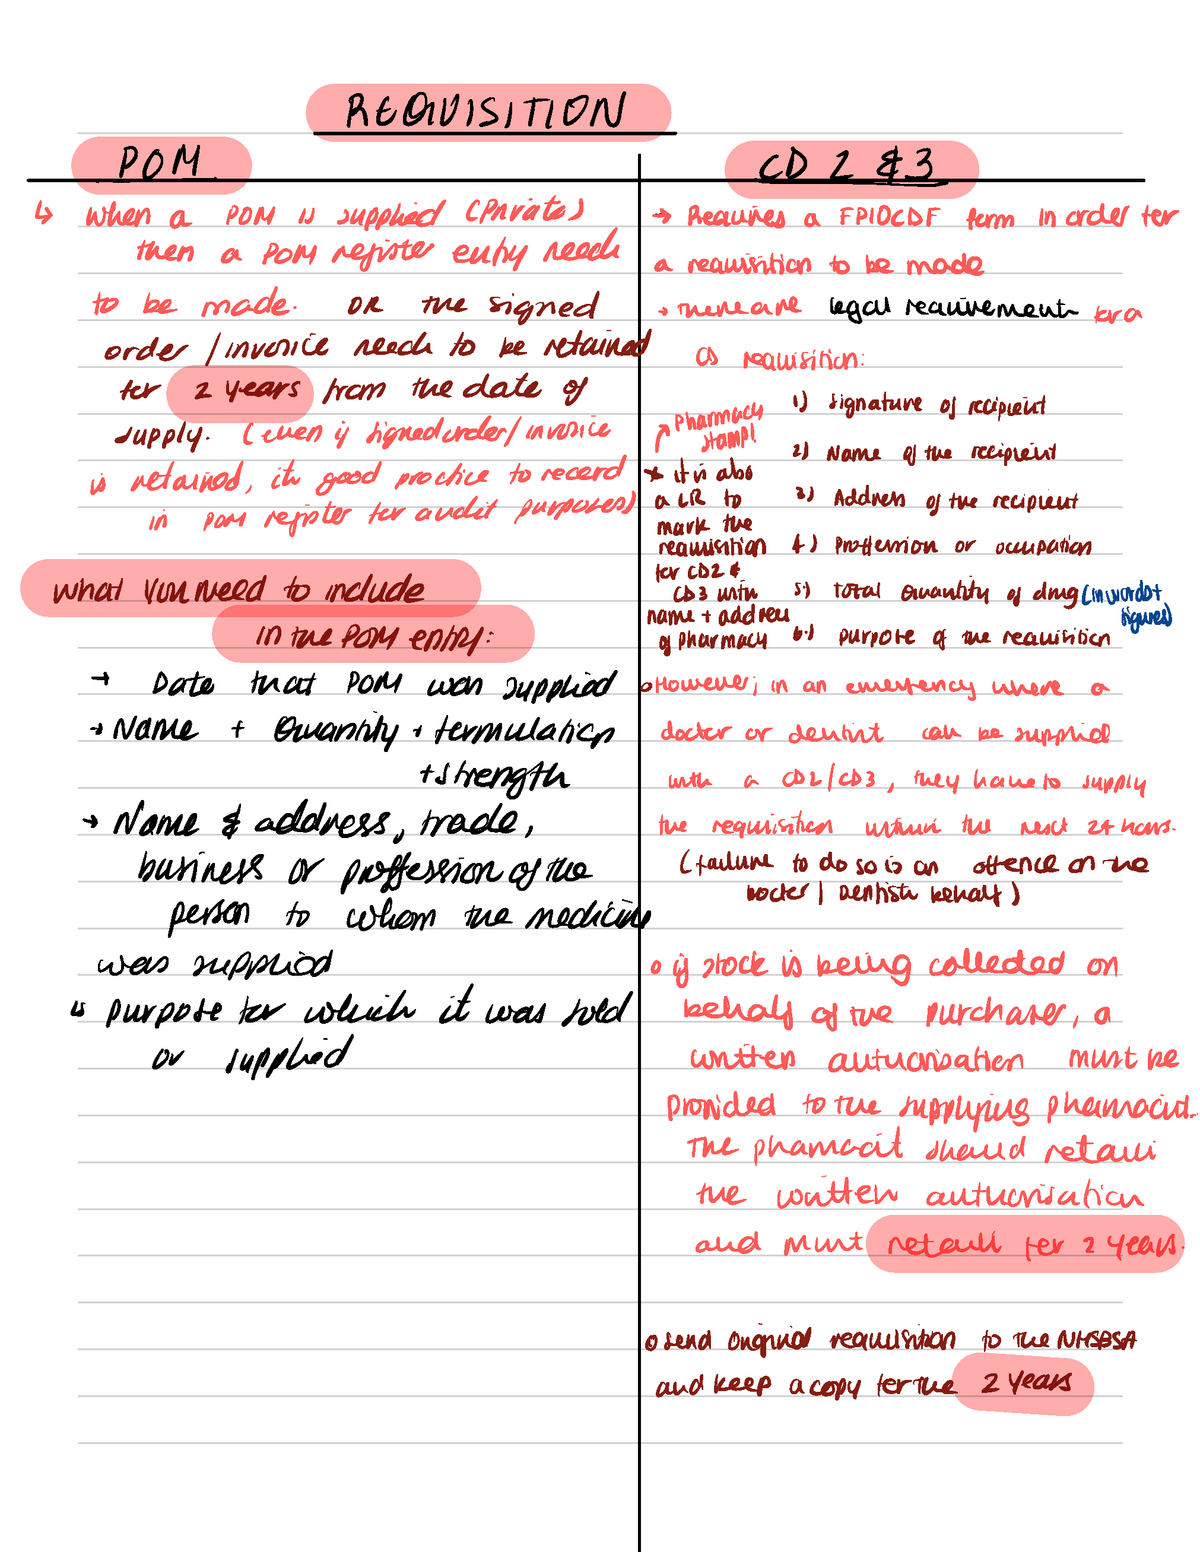 REQUISITION
POM
↳ when a POM is supplied (Private)
then a POM register entry needs
to be made. OR the signed
order / invoice needs to be retained
for 2 years from the date of
supply. (even if signed order / invoice
is retained, its good practice to record
in POM register for audit purposes)
What you need to include
in the POM entry:
→ Date that POM was supplied
→ Name + Quantity + formulation
+ strength
→ Name & address, trade,
business or proffession of the
person to whom the medicine
was supplied
↳ purpose for which it was sold
or supplied
CD 2 & 3
→ Requires a FP10CDF form in order for
a requisition to be made
→ There are legal requirement for a
CD requisition:
1) Signature of recipient
2) Name of the recipient
3) Address of the recipient
4) Proffession or occupation
5) total Quantity of drug (in words +
figures)
6) purpose of the requisition
Pharmacy
stamp!
* it is also
a LR to
mark the
requisition
for CD2 &
CD3 with
name + address
of pharmacy
o However, in an emergency where a
doctor or dentist can be supplied
with a CD2/CD3, they have to supply
the requisition within the next 24 hours.
(failure to do so is an offence on the
Doctor / Dentists behalf)
o if stock is being collected on
behalf of the purchaser, a
written authorisation must be
provided to the supplying pharmacist.
The pharmacist should retain
the written authorisation
and must retain for 2 years.
o send original requisition to the NHSBSA
and keep a copy for the 2 years